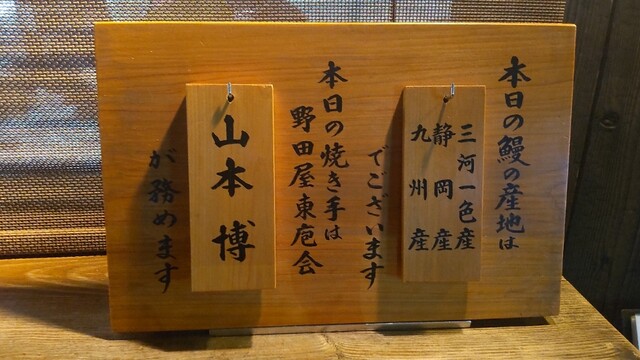 本日の鰻の産地は
三河一色産
静岡産
九州産
でございます
本日の焼き手は
野田屋東庖会
山本博
が務めます